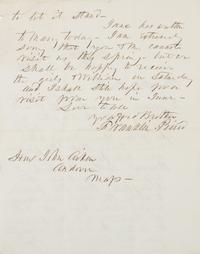 to let it stand -
Jane has written
to Mary today - I am extremely
sorry that you & Mr cannot
visit us this spring - but we
shall be happy to receive
the girls & William on Saturday
and I shall still hope for a
visit from you in June -
Ever to all
Your affec Brother
Franklin Pierce
Hon John Aiken
Andover
Mass -